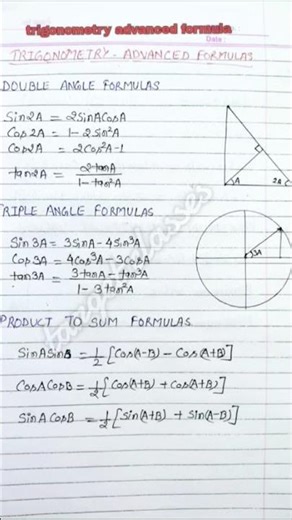 trigonometry advanced formula
Date
TRIGONOMETRY - ADVANCED FORMULAS
DOUBLE ANGLE FORMULAS
Sin2A = 2SinACosA
Cos2A = 1-2Sin²A
Cos2A = 2Cos²A-1
tan2A = 2tanA / 1-tan²A
A 2A
TRIPLE ANGLE FORMULAS
Sin3A = 3SinA-4Sin³A
Cos3A = 4Cos³A-3CosA
tan3A = 3tanA-tan³A / 1-3tan²A
3A
PRODUCT TO SUM FORMULAS
SinASinB = 1/2 [Cos(A-B) - Cos(A+B)]
CosACosB = 1/2 [Cos(A+B) + Cos(A+B)]
SinACosB = 1/2 [Sin(A+B) + Sin(A-B)]